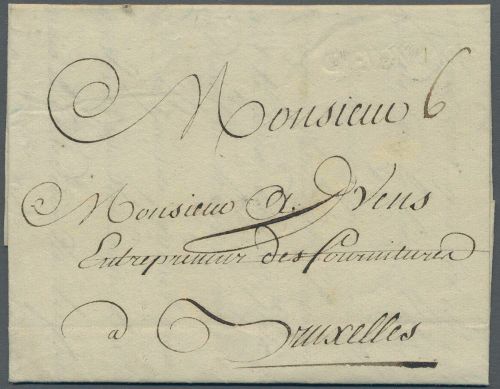 Monsieur 6
Monsieur A. Yvens
Entrepreneur des fournitures
a Bruxelles